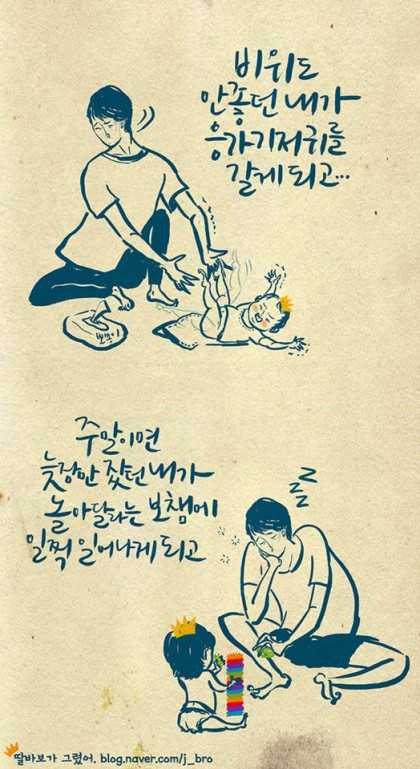 비위도
안좋던 내가
응가기저귀를
갈게 되고...
뽀쪼이
주말이면
늦잠만 잤던 내가
놀아달라는 보챔에
일찍 일어나게 되고
z z z
딸바보가 그렸어. blog.naver.com/j_bro